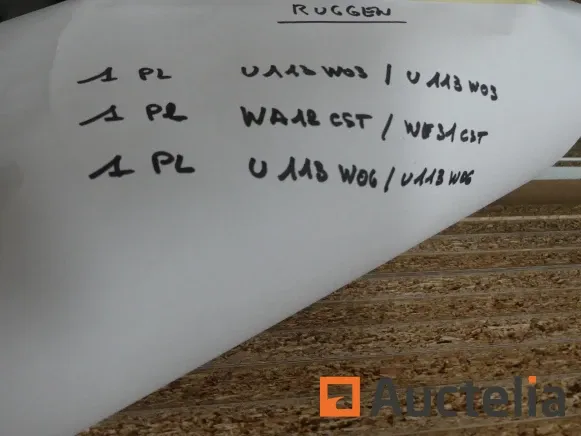 RUGGEN
1 PL U113 W03 / U113 W03
1 PL WA12 CST / WE31 CST
1 PL U113 W06 / U113 W06
Auctelia